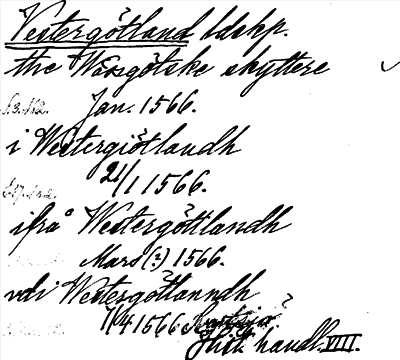 Vestergötland ldskp.
the Wäsgötske skyttere
Jan. 1566.
i Westergiötlandh
21/1 1566.
ifrå Westergöttlandh
Mars (?) 1566.
vdi Westergötlanndh
1/4 1566
Hist. handl. VIII.